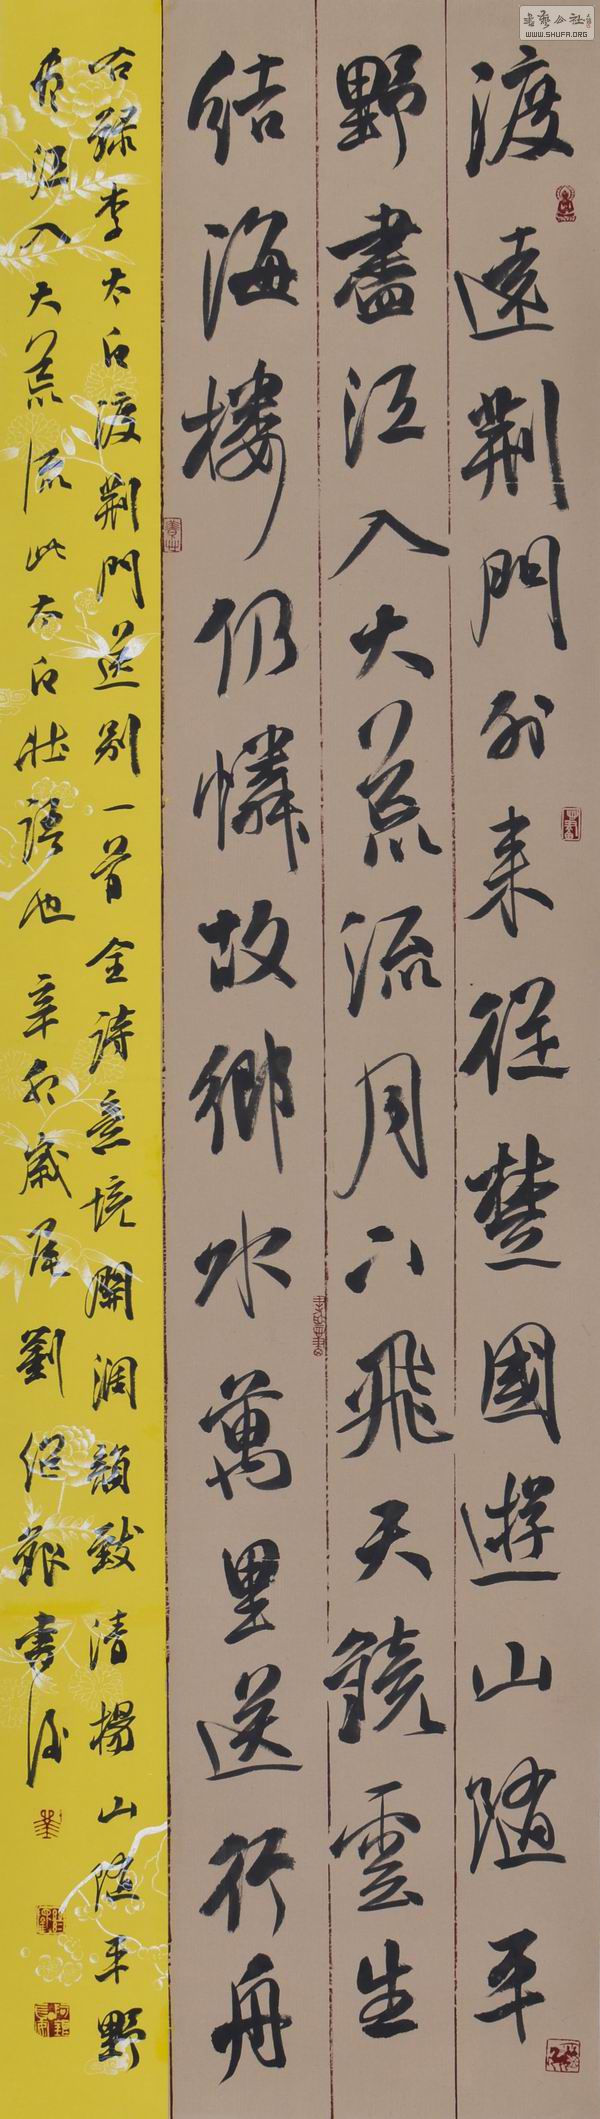 渡遠荆門外来從楚國遊山隨平
野盡江入大荒流月下飛天鏡雲生
結海樓仍憐故鄉水萬里送行舟
右録李太白渡荆門送别一首全詩意境開濶韻致清揚山随平野
尽江入大荒流此太白壯語也辛卯歲尾劉紹書
書藝公社
WWW.SHUFA.ORG